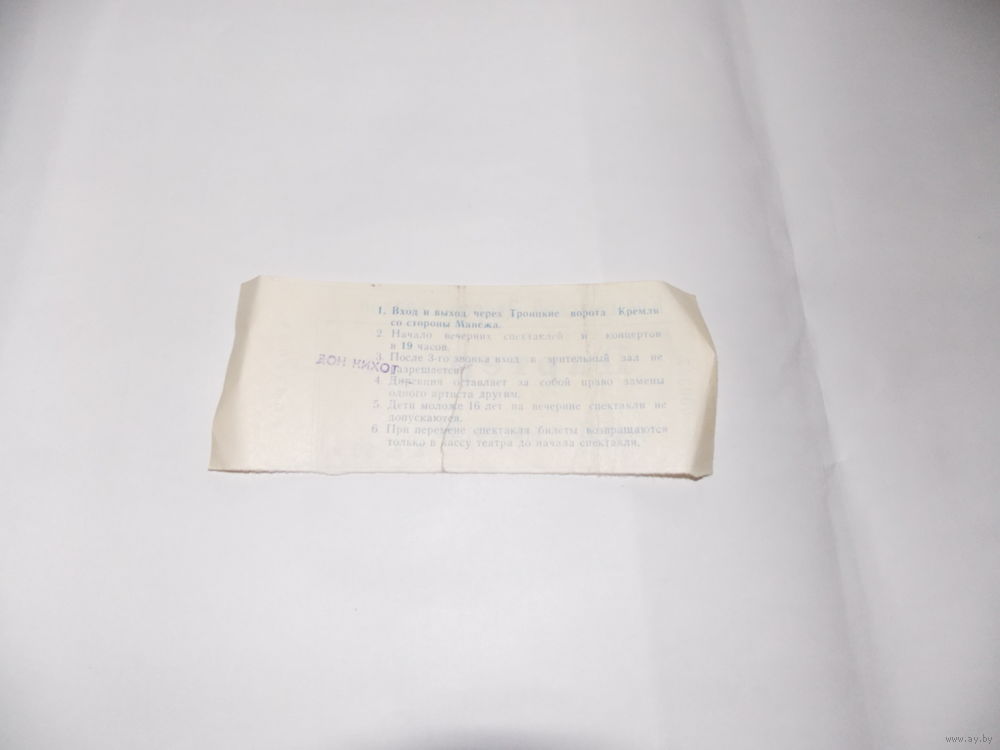 1. Вход и выход через Троицкие ворота Кремля
со стороны Манежа.
2 Начало вечерних спектаклей и концертов
в 19 часов.
3 После 3-го звонка вход в зрительный зал не
разрешается.
4 Дирекция оставляет за собой право замены
одного артиста другим.
5. Дети моложе 16 лет на вечерние спектакли не
допускаются.
6 При перемене спектакля билеты возвращаются
только в кассу театра до начала спектакля.
www.ay.by